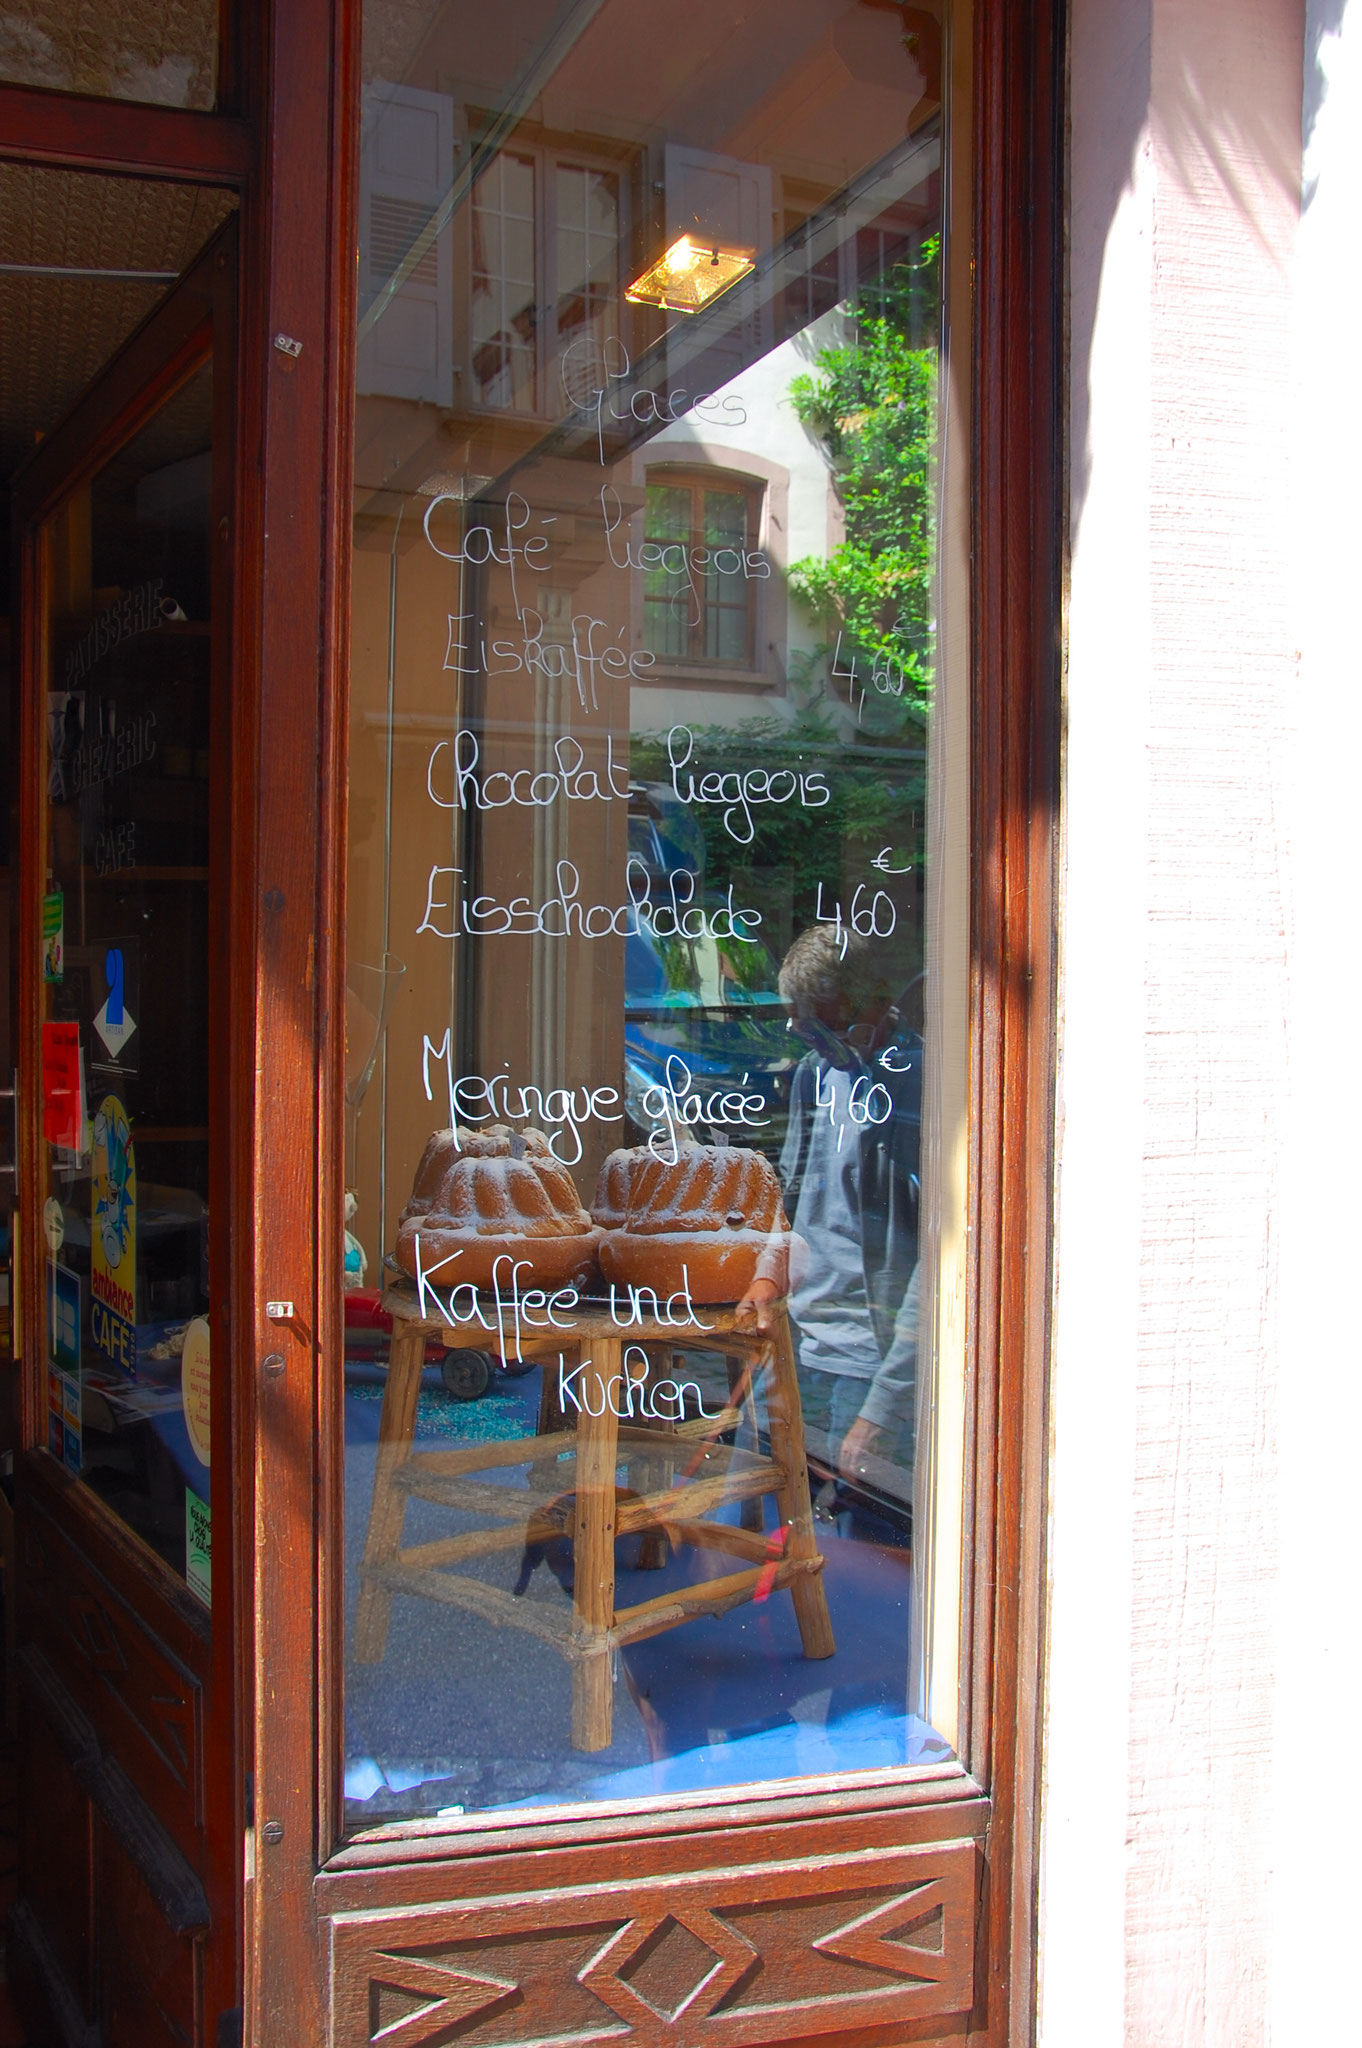 Glaces
Café liegeois
Eiskaffée 4,60 €
Chocolat liegeois
Eisschockolade 4,60 €
Meringue glacée 4,60 €
Kaffee und
Kuchen
PATISSERIE
CHEZ ERIC
CAFE
ARTISAN
ambiance
CAFÉ